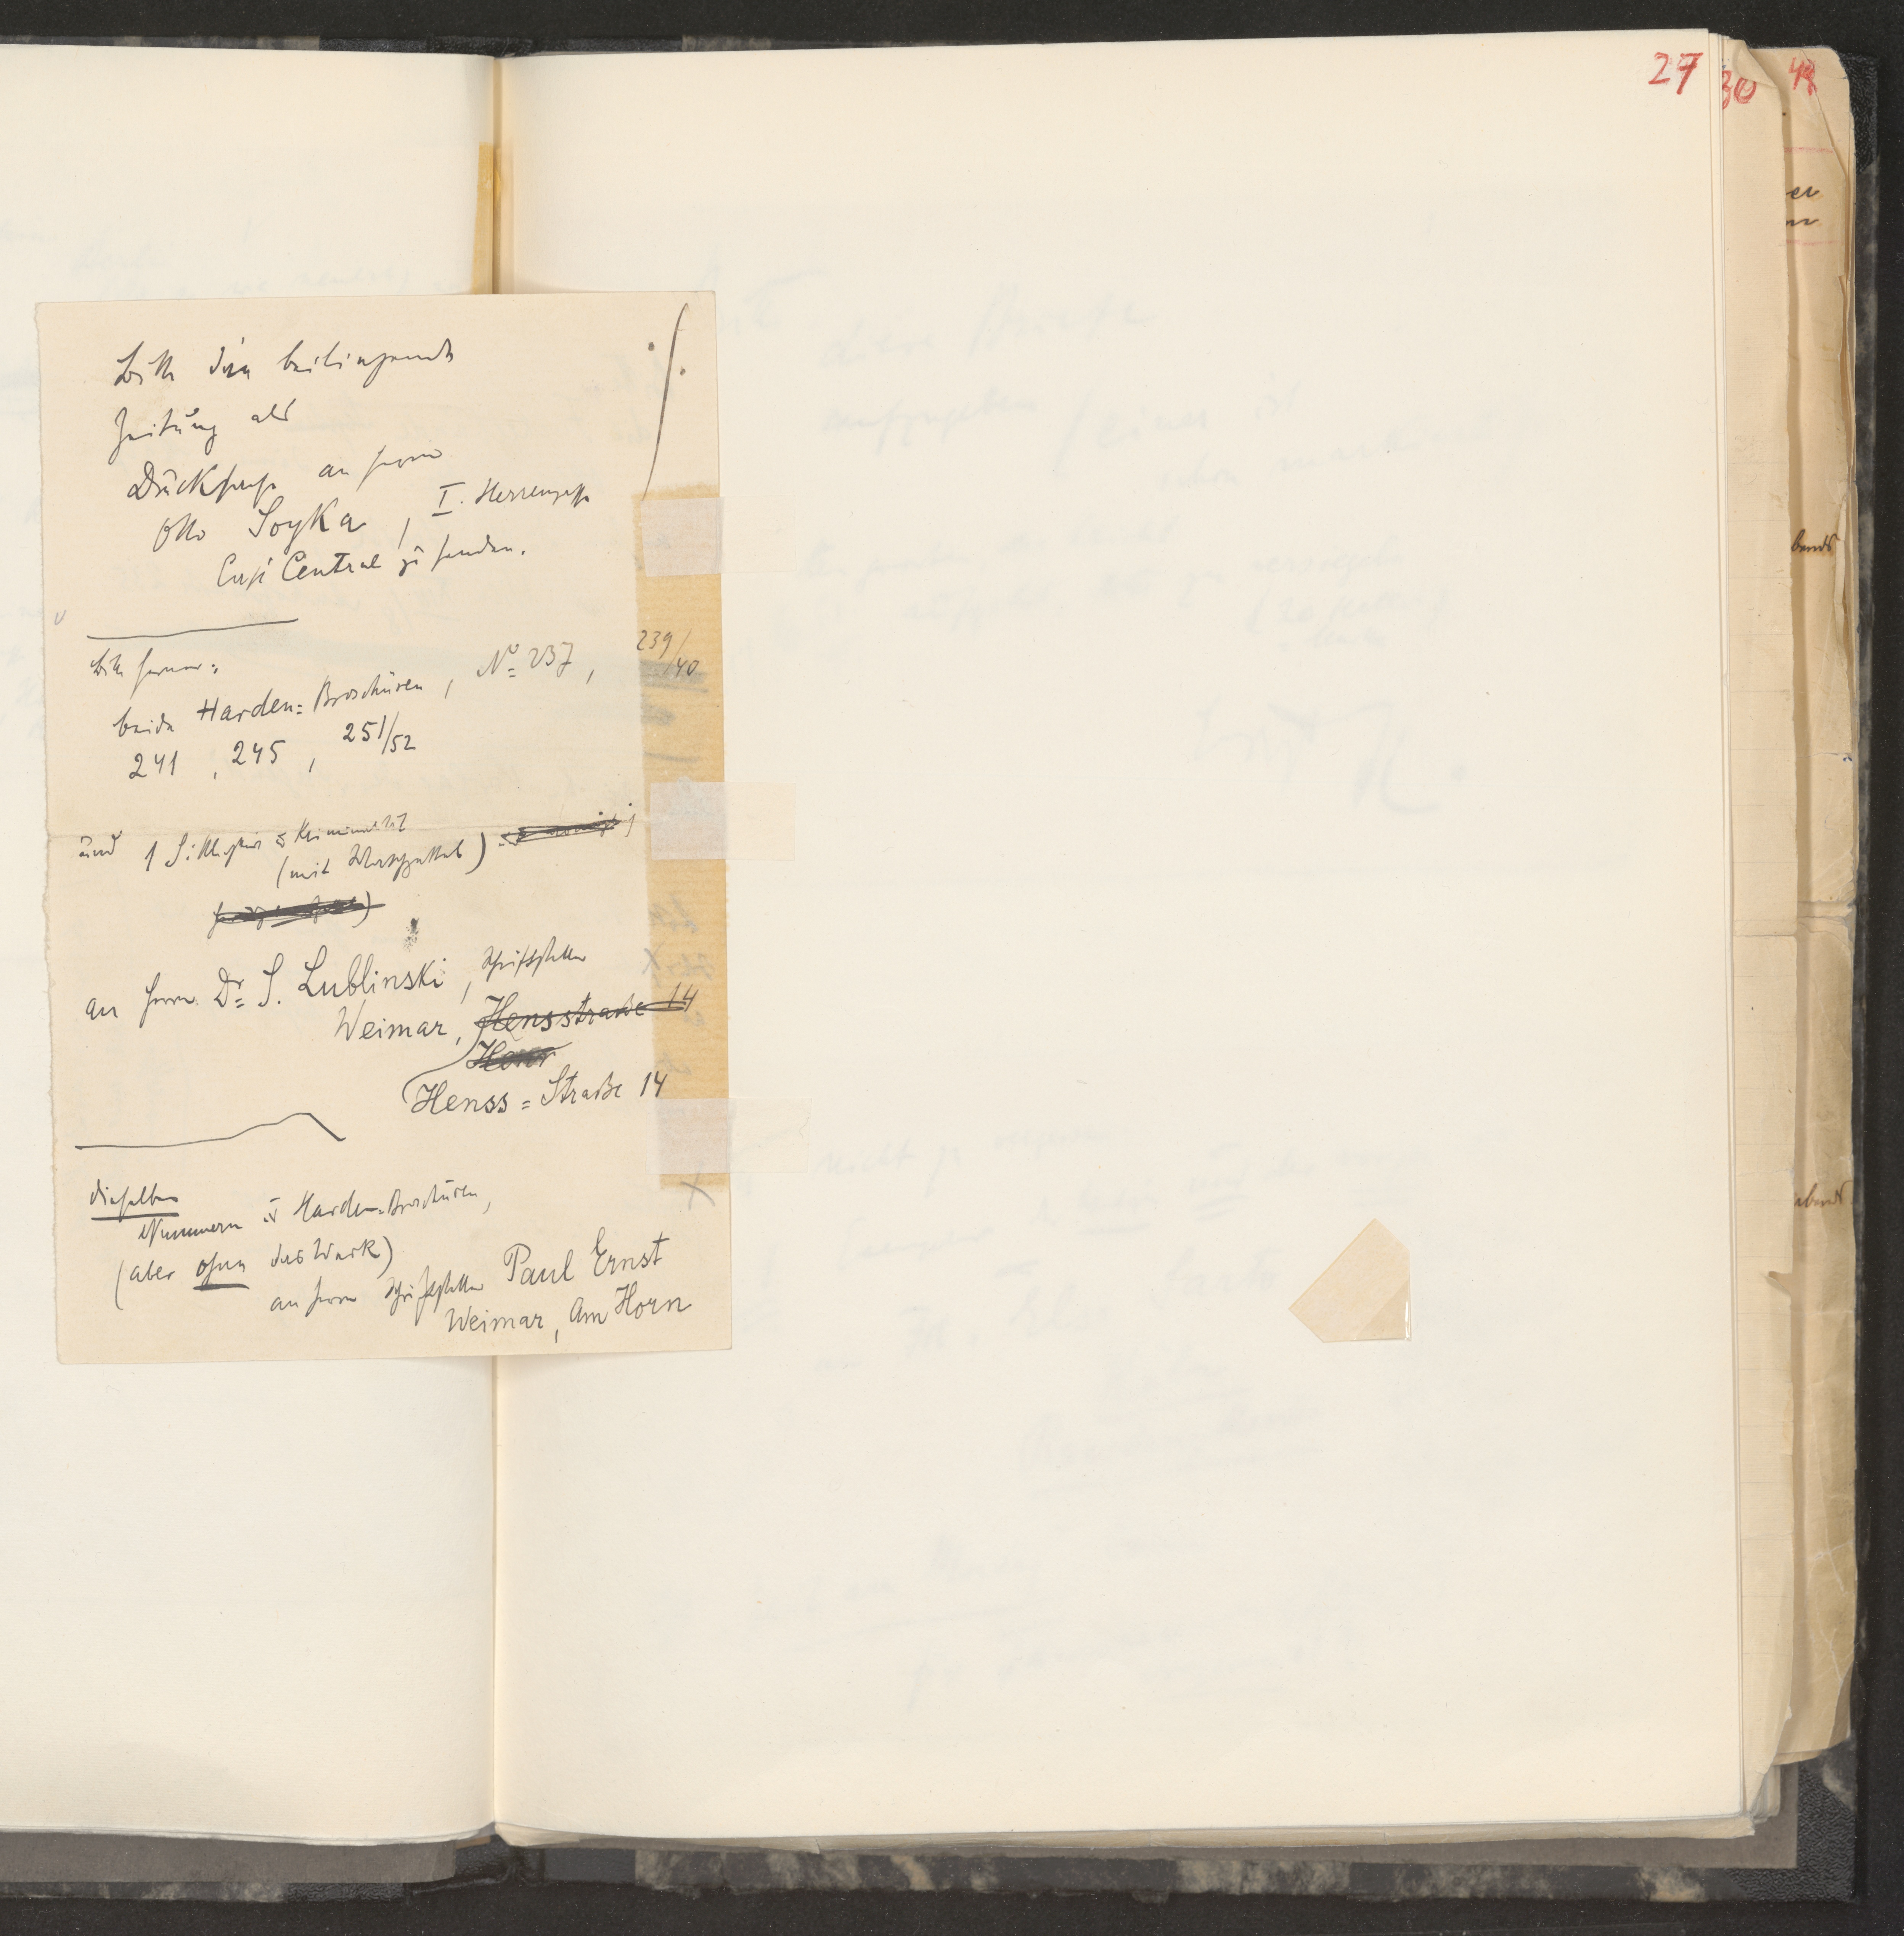 27
30
Bitte die beiliegende
Zeitung als
Drucksache an Herrn
Otto Soyka, I. Herrengasse
Café Central zu senden.
Bitte ferner:
beide Harden=Broschüren, No 237, 239/40
241, 245, 251/52
und 1 Sittlichkeit u Kriminalität
(mit Waschzettel)
an Herrn Dr S. Lublinski, Schriftsteller
Weimar, Hensstraße 14
Henss=Straße 14
dieselben
Nummern u Harden-Broschüren,
(aber ohne das Werk)
an Herrn Schriftsteller Paul Ernst
Weimar, Am Horn